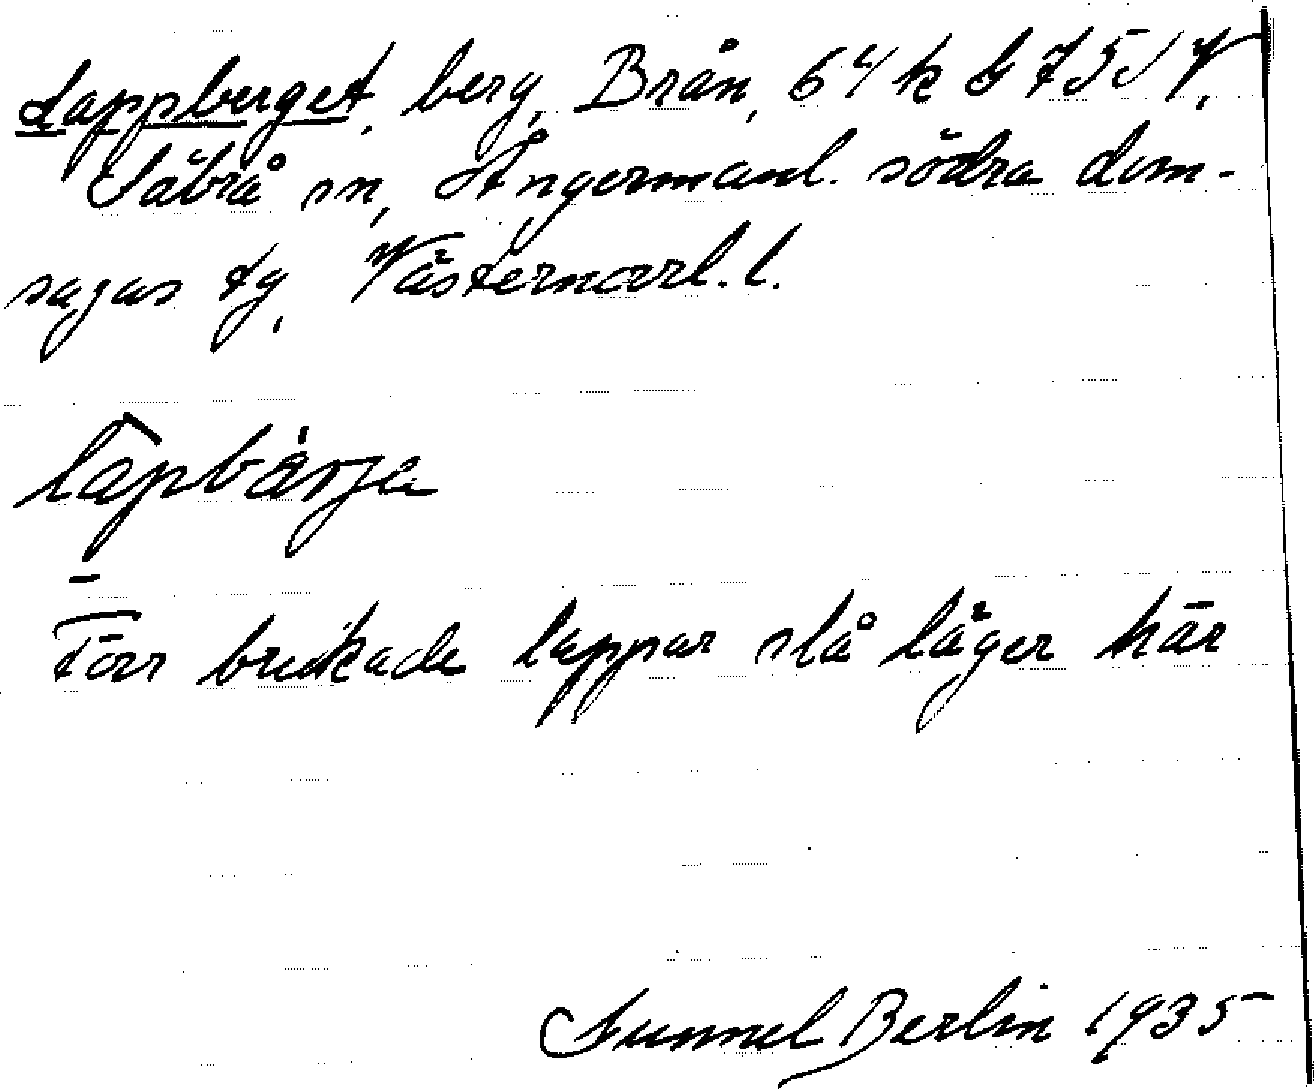 Lappberget, berg, Brån, 64 k G 75 i V,
Säbrå sn, Ångermanl. södra dom-
sagas tg, Västernorrl. l.
lapbärja
Förr brukade lappar slå läger här
Gunnel Berlin 1935